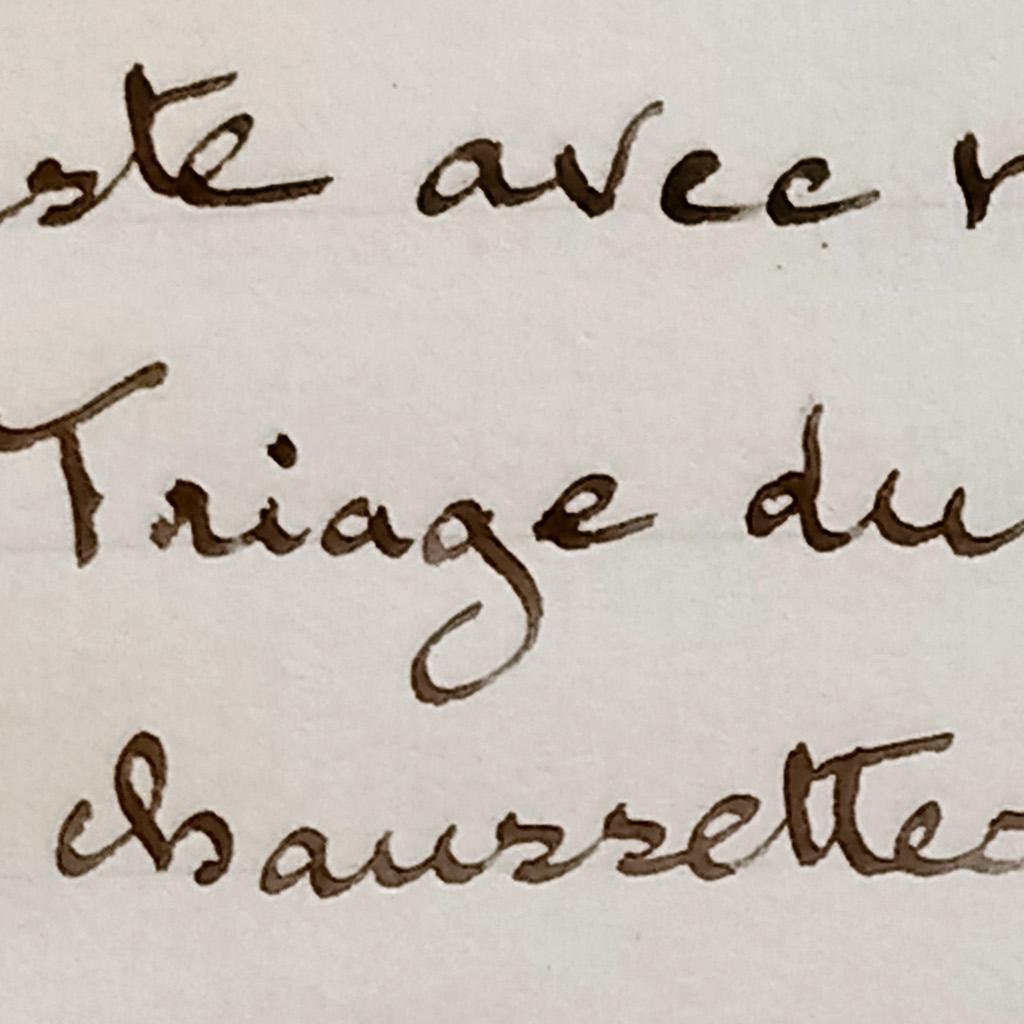 ste avec
Triage du
chaussettes